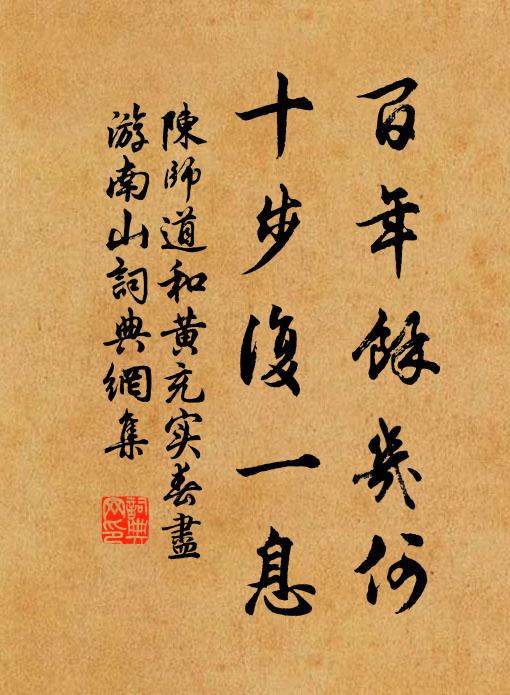 百年餘幾何
十步復一息
陳師道和黄充实春盡
游南山詞典網集
詞典
网印